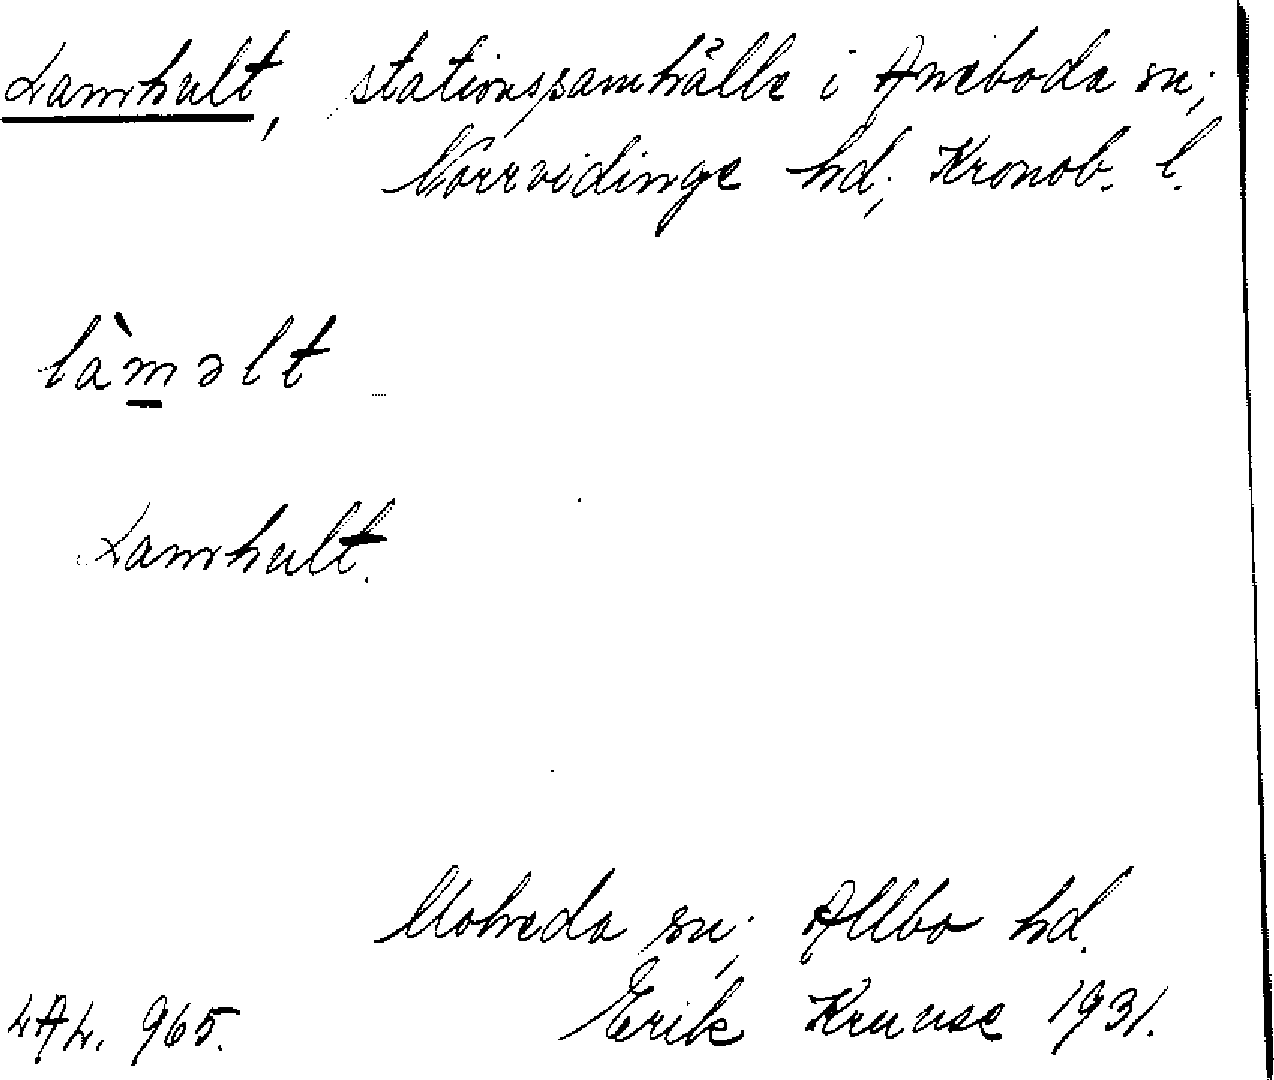 Lamhult, stationssamhälle i Aneboda sn;
Norrvidinge hd; Kronob. l.
làm̲əlt
Lamhult.
Moheda sn; Allbo hd.
LAL. 965. Erik Kruuse 1931.